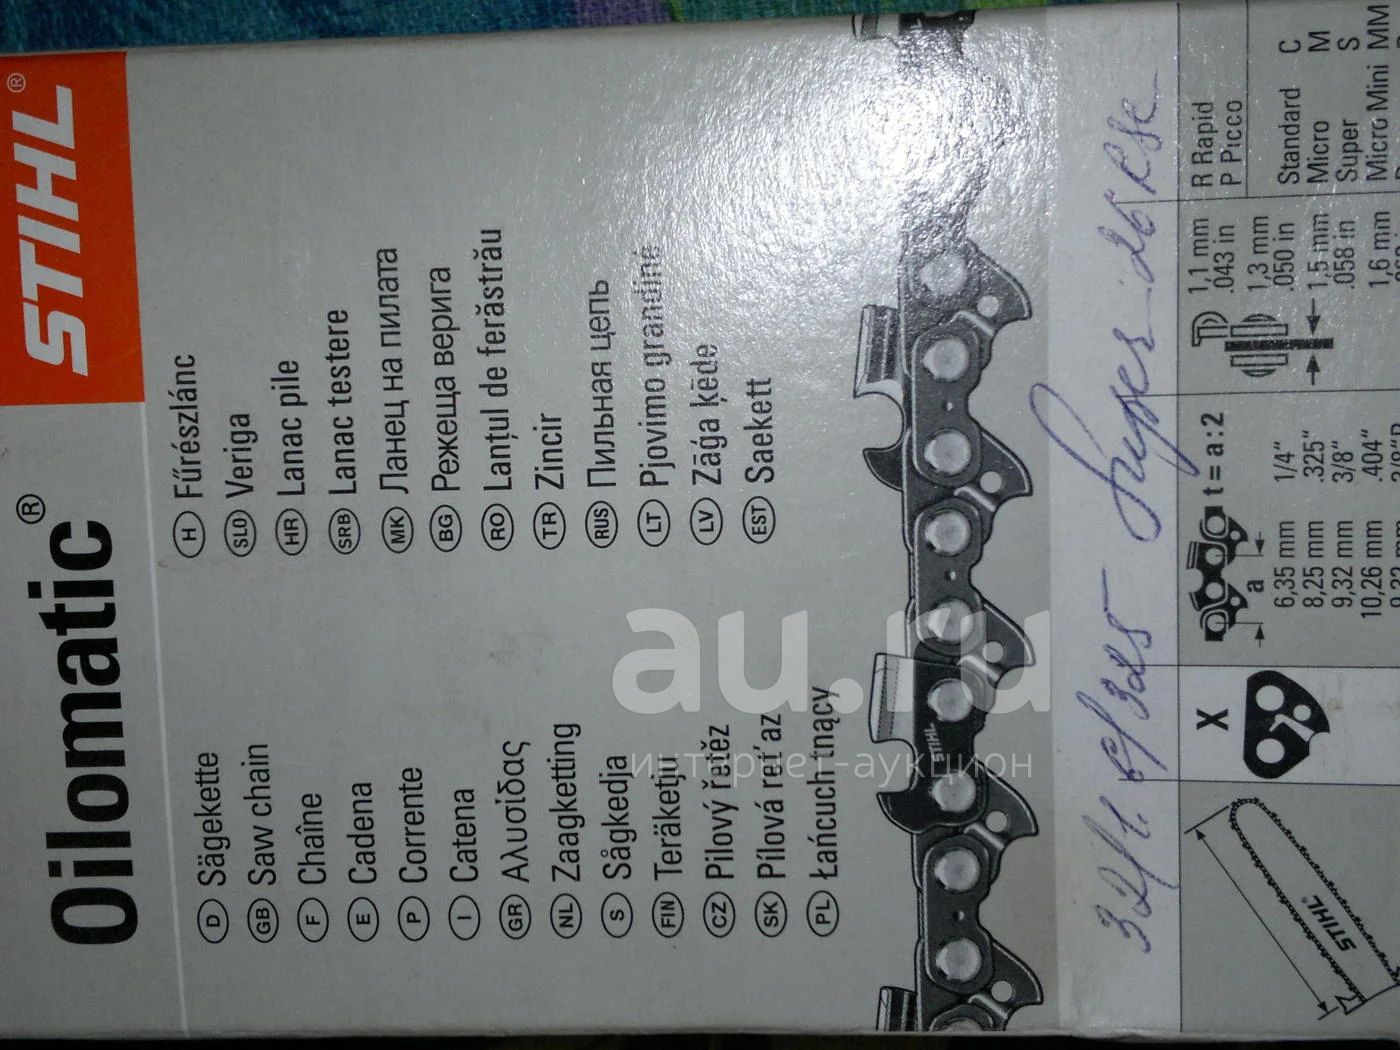 STIHL®
Oilomatic®
D Sägekette
GB Saw chain
F Chaîne
E Cadena
P Corrente
I Catena
GR Αλυσίδας
NL Zaagketting
S Sågkedja
FIN Teräketju
CZ Pilový řetěz
SK Pílová ret'az
PL Łańcuch tnący
H Fűrészlánc
SLO Veriga
HR Lanac pile
SRB Lanac testere
MK Ланец на пилата
BG Режеща верига
RO Lanţul de ferăstrău
TR Zincir
RUS Пильная цепь
LT Pjovimo grandinė
LV Zāģa ķēde
EST Saekett
STIHL
au.ru
интернет-аукцион
325 Super 26 RSC
STIHL®
X
a t = a : 2
6,35 mm 1/4"
8,25 mm .325"
9,32 mm 3/8"
10,26 mm .404"
1,1 mm
.043 in
1,3 mm
.050 in
1,5 mm
.058 in
1,6 mm
R Rapid
P Picco
Standard C
Micro M
Super S
Micro Mini MM